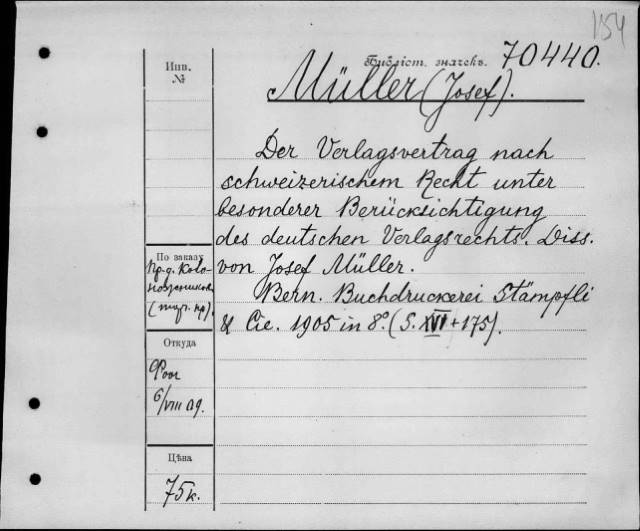 154
Библіот. значекъ. 70440.
Инв.
№
Müller (Josef).
Der Verlagsvertrag nach
schweizerischem Recht unter
besonderer Berücksichtigung
des deutschen Verlagsrechts. Diss.
von Josef Müller.
Bern. Buchdruckerei Stämpfli
& Cie. 1905 in 8°. (S. XVI + 175).
По заказу
Откуда
6/VIII 09.
Цѣна
75к.